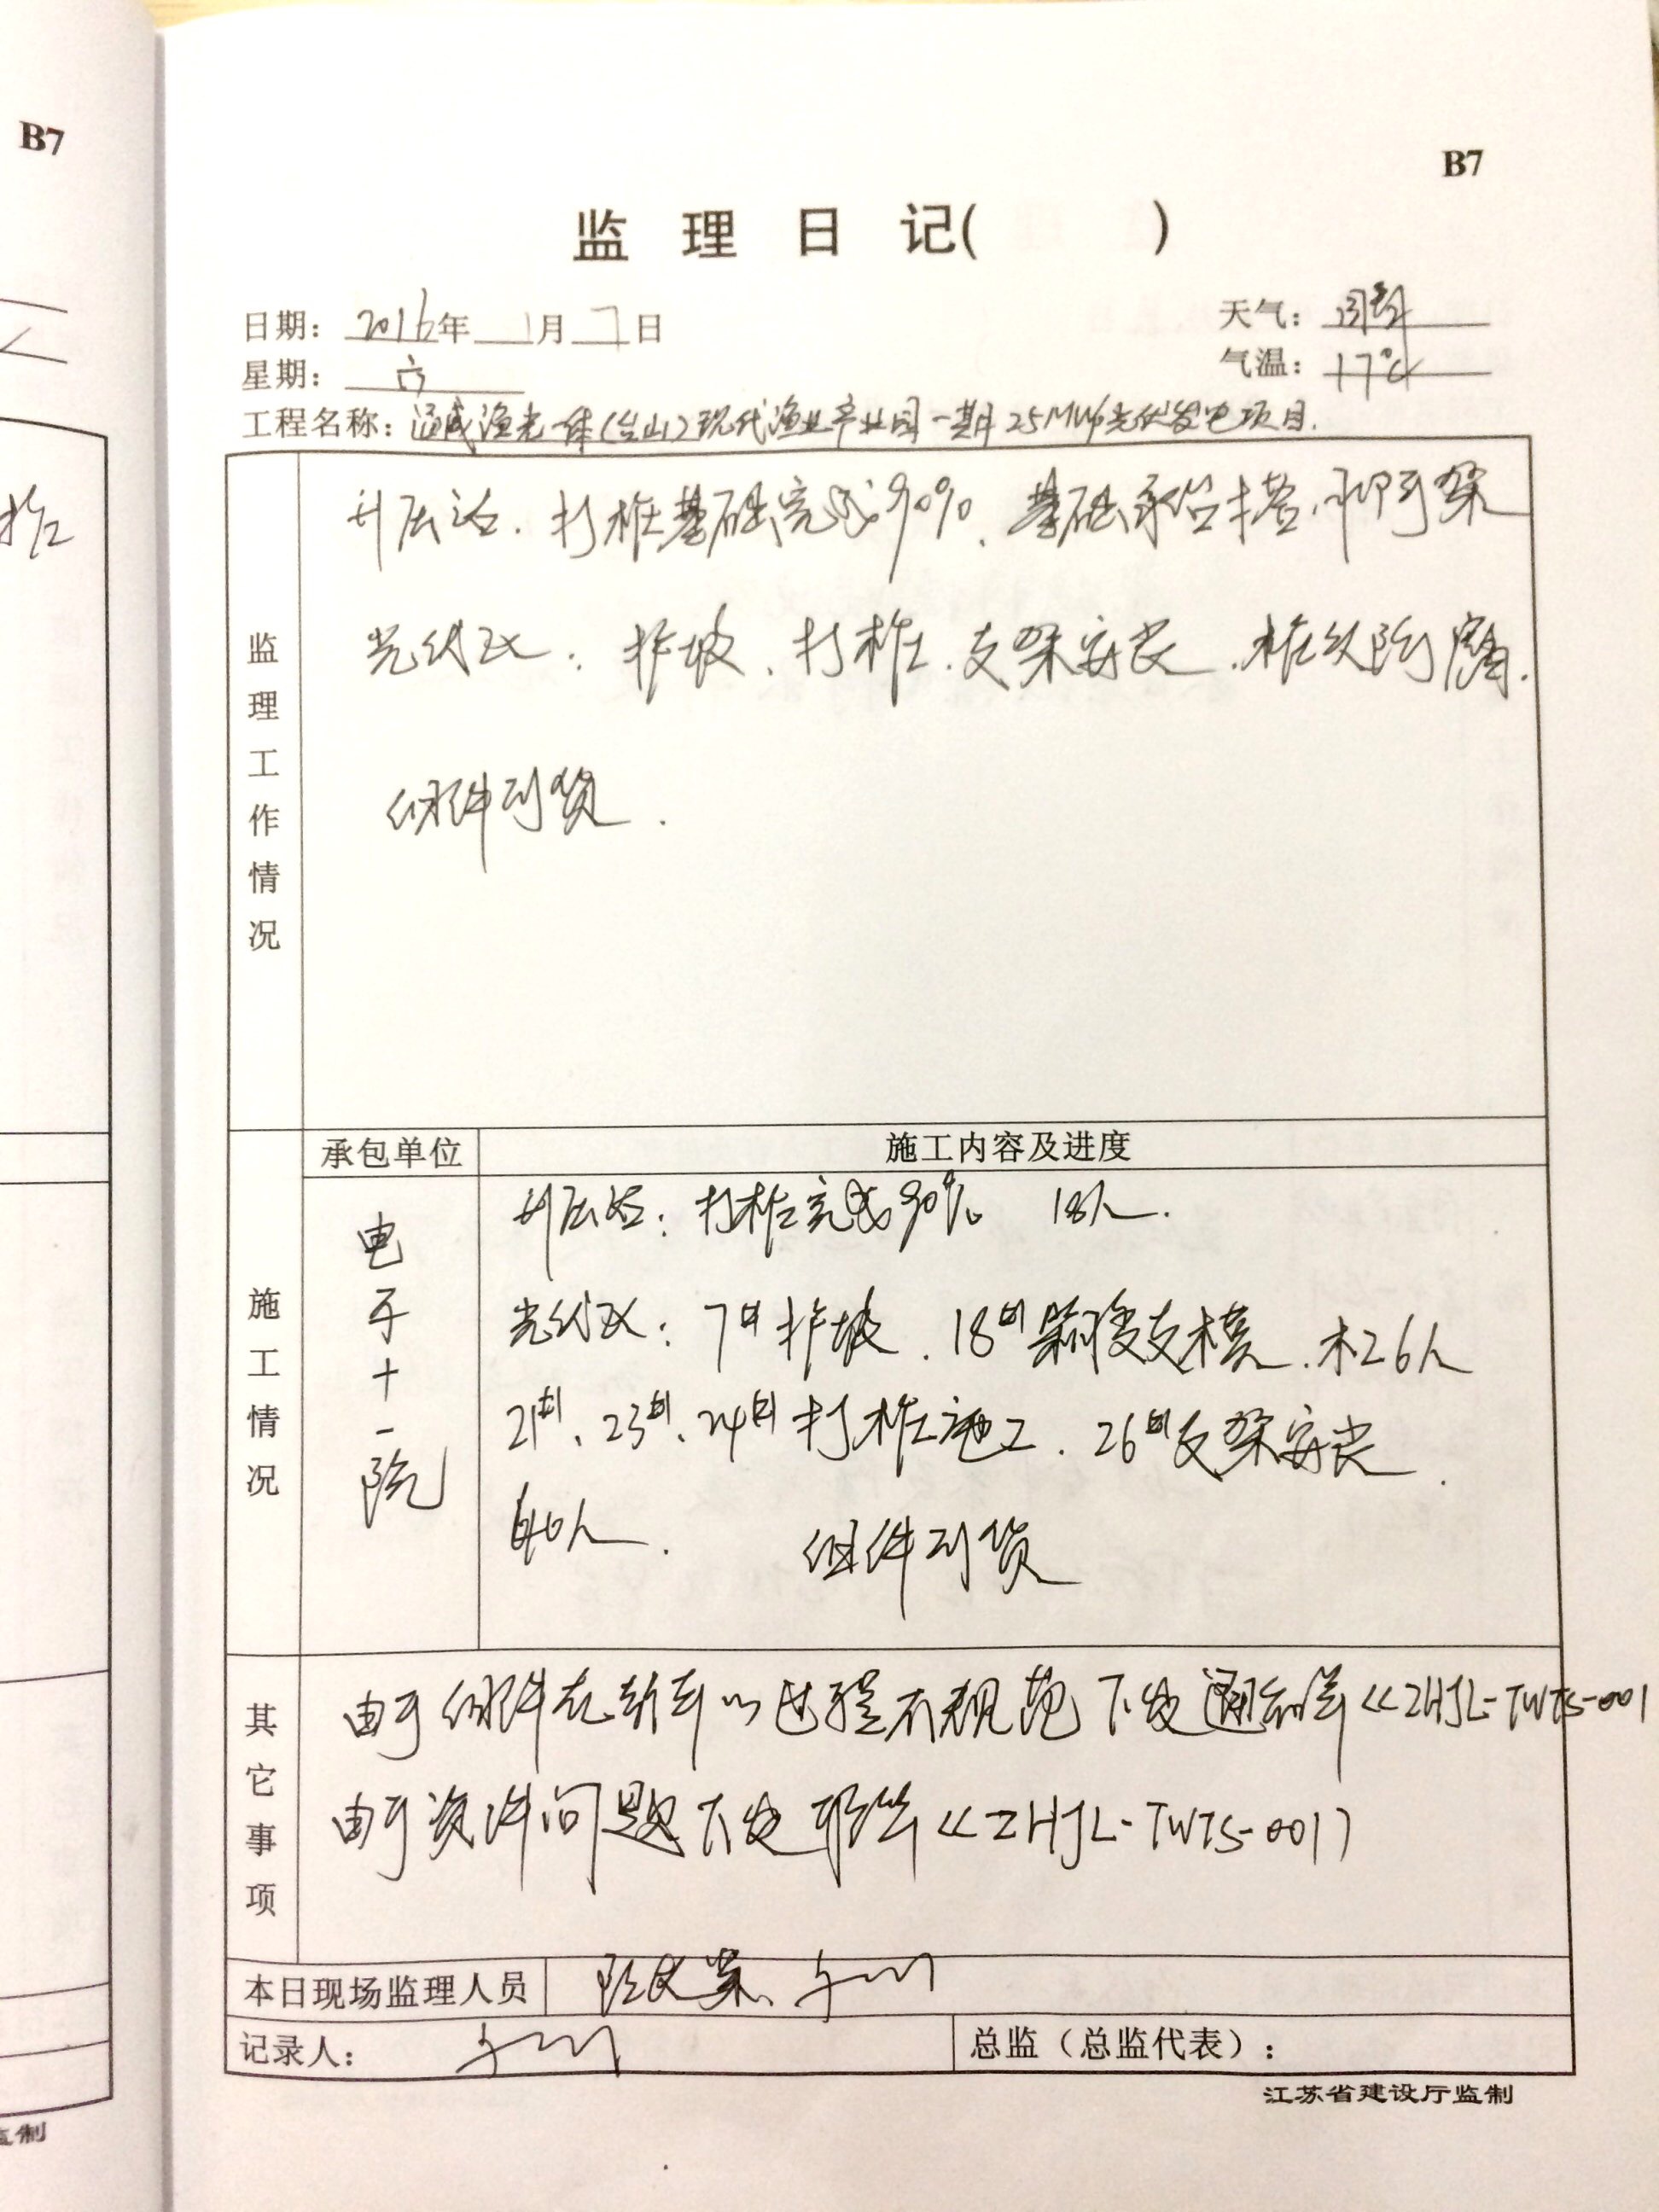 B7
B7
监理日记( )
日期：2016年1月7日
天气：阴
星期：六
气温：17℃
工程名称：通威渔光一体(台山)现代渔业产业园一期25MWp光伏发电项目.
监理工作情况
升压站．打桩基础完成90%、基础承台
光伏区：护坡、打桩、支架安装、桩头防腐.
组件到货．
施工情况
承包单位
施工内容及进度
电子十一院
升压站：打桩完成90% 18人.
光伏区：7#护坡．18#支模、木工6人
21#、23#、24#打桩施工．26#支架安装．
40人． 组件到货
其它事项
由于组件在卸车过程不规范下发通知单《ZHJL-TWTS-001
由于资料问题下发 《ZHJL-TWTS-001》
本日现场监理人员
记录人：
总监（总监代表）：
江苏省建设厅监制
监制